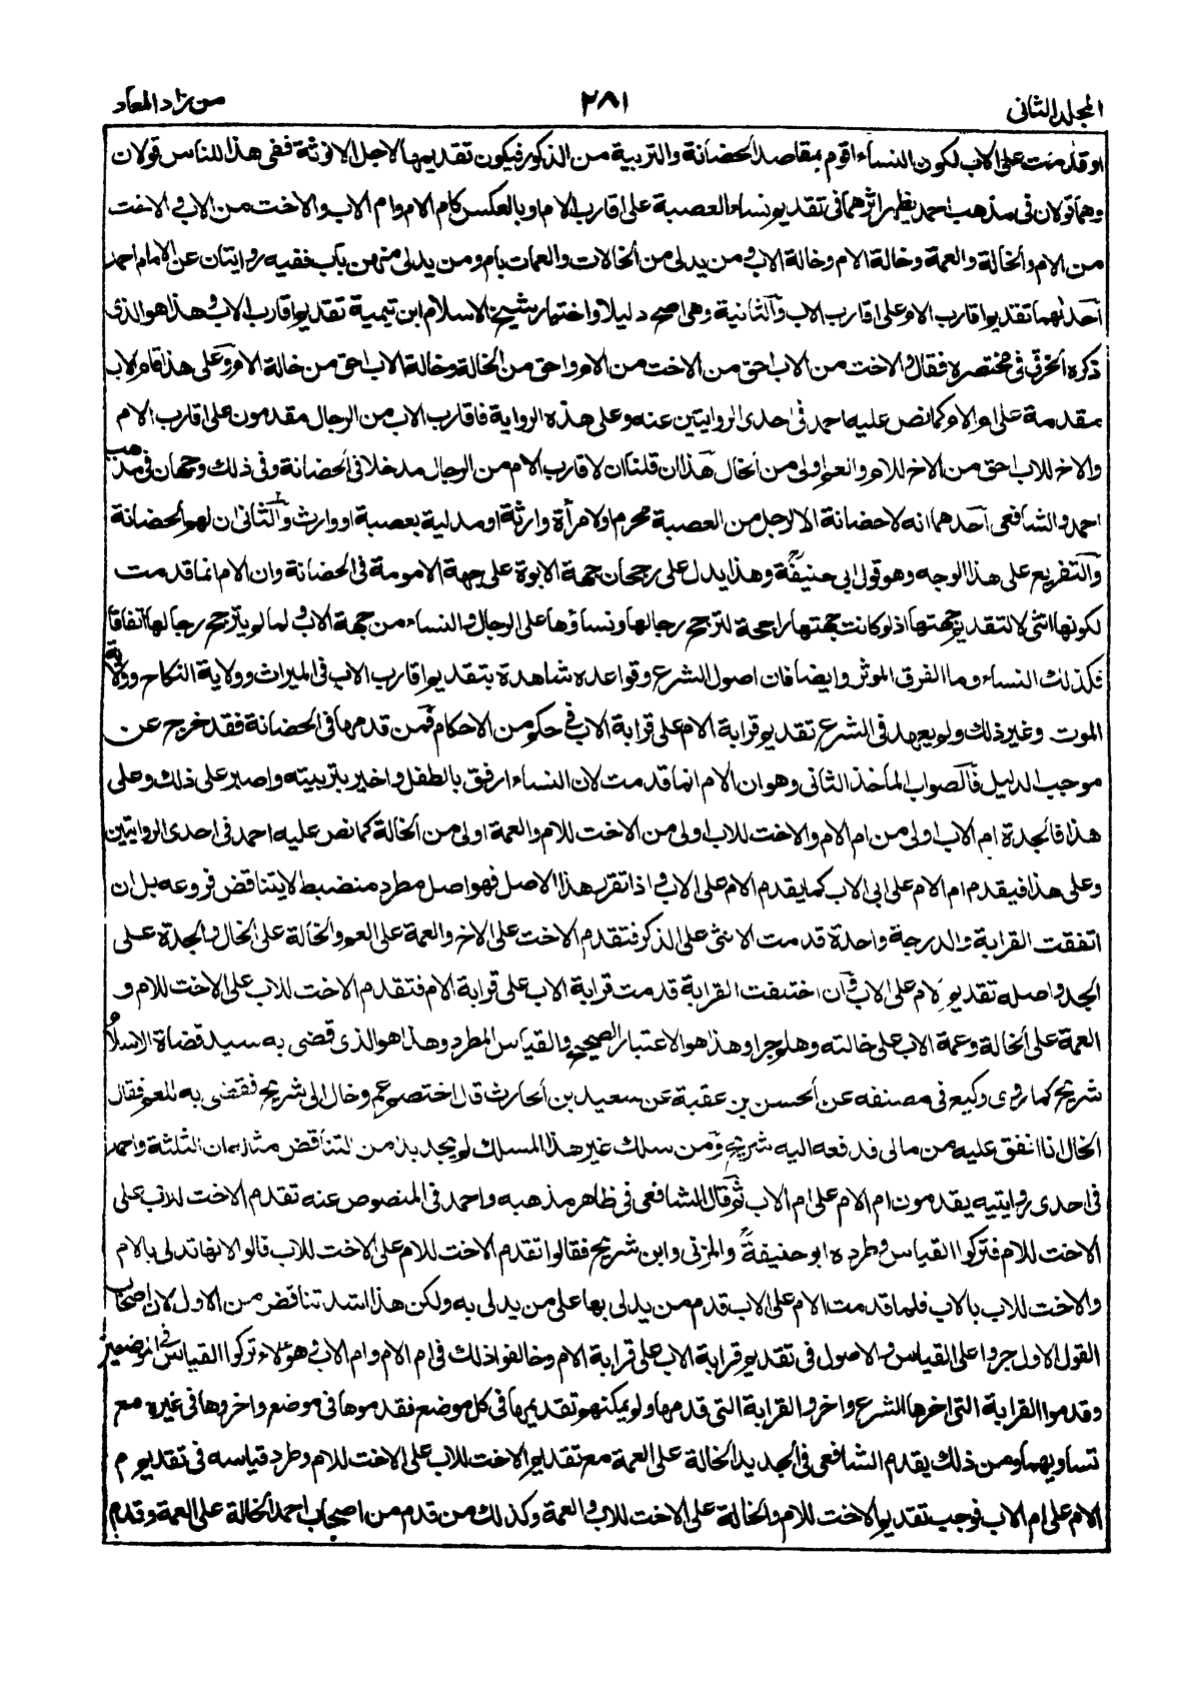 المجلد الثانى ٢٨١ من زاد المعاد
او قدمت على الاب لكون النساء اقوم بمقاصد الحضانة والتربية من الذكور فيكون تقديمها لاجل الانوثة ففى هذا للناس قولان
وهما قولان فى مذهب احمد يظهر اثرهما فى تقديم نساء العصبة على اقارب الام او بالعكس كام الام وام الاب والاخت من الاب والاخت
من الام والخالة والعمة وخالة الام وخالة الاب ومن يدلى من الخالات والعمات بام ومن يدلى منهن باب ففيه روايتان عن الامام احمد
احدٰهما تقديم اقارب الام على اقارب الاب والثانية وهى اصح دليلا واختيار شيخ الاسلام ابن تيمية تقديم اقارب الاب وهذا هو الذى
ذكره الخرقى فى مختصره فقال والاخت من الاب احق من الاخت من الام واحق من الخالة وخالة الاب احق من خالة الام وعلى هذا فام الاب
مقدمة على ام الام كما نص عليه احمد فى احدى الروايتين عنه وعلى هذه الرواية فاقارب الاب من الرجال مقدمون على اقارب الام
والاخ للاب احق من الاخ للام والعم اولى من الخال هذا ان قلنا ان لاقارب الام من الرجال مدخلا فى الحضانة وفى ذلك وجهان فى مذهب
احمد والشافعى احدهما انه لا حضانة الا لرجل من العصبة محرم او لامرأة وارثة او مدلية بعصبة او وارث والثانى ان لهم الحضانة
والتفريع على هذا الوجه وهو قول ابى حنيفةؒ وهذا يدل على رجحان جهة الابوة على جهة الامومة فى الحضانة وان الام انما قدمت
لكونها انثى لا لتقديم جهتها اذ لو كانت جهتها راجحة لترجح رجالها ونساؤها على الرجال والنساء من جهة الاب ولما لم يترجح رجالها اتفاقا
فكذلك النساء وما الفرق الموثر وايضا فان اصول الشرع وقواعده شاهدة بتقديم اقارب الاب فى الميراث وولاية النكاح وولاية
الموت وغير ذلك ولم يعهد فى الشرع تقديم قرابة الام على قرابة الاب فى حكم من الاحكام فمن قدمها فى الحضانة فقد خرج عن
موجب الدليل فالصواب الماخذ الثانى وهو ان الام انما قدمت لان النساء ارفق بالطفل واخير بتربيته واصبر على ذلك وعلى
هذا فالجدة ام الاب اولى من ام الام والاخت للاب اولى من الاخت للام والعمة اولى من الخالة كما نص عليه احمد فى احدى الروايتين
وعلى هذا فيقدم ام الام على ابى الاب كما يقدم الام على الاب واذا تقرر هذا الاصل فهو اصل مطرد منضبط لا يتناقض فروعه بل ان
اتفقت القرابة والدرجة واحدة قدمت الانثى على الذكر فتقدم الاخت على الاخ والعمة على العم والخالة على الخال والجدة على
الجد واصله تقديم الام على الاب وان اختلفت القرابة قدمت قرابة الاب على قرابة الام فتقدم الاخت للاب على الاخت للام و
العمة على الخالة وعمة الاب على خالته وهلم جرا وهذا هو الاعتبار الصحيح والقياس المطرد وهذا هو الذى قضى به سيد قضاة الاسلام
شريح كما روى وكيع فى مصنفه عن الحسن بن عقبة عن سعيد بن الحارث قال اختصم عم وخال الى شريح فقضى به للعم فقال
الخال انا انفق عليه من مالى فدفعه اليه شريح ومن سلك غير هذا المسلك لم يجد بدا من التناقض مثاله ان الثلثة واحمد
فى احدى روايتيه يقدمون ام الام على ام الاب ثم قال الشافعى فى ظاهر مذهبه واحمد فى المنصوص عنه تقدم الاخت للاب على
الاخت للام فتركوا القياس وطرده ابو حنيفةؒ والمزنى وابن شريح فقالوا تقدم الاخت للام على الاخت للاب قالوا لانها تدلى بالام
والاخت للاب بالاب فلما قدمت الام على الاب قدم من يدلى بها على من يدلى به ولكن هذا اشد تناقضا من الاول لان اصحاب
القول الاول جروا على القياس والاصول فى تقديم قرابة الاب على قرابة الام وخالفوا ذلك فى ام الام وام الاب وهؤلاء تركوا القياس فى الموضعين
وقدموا القرابة التى اخرها الشرع واخروا القرابة التى قدمها ولم يمكنهم تقديمها فى كل موضع فقدموها فى موضع واخروها فى غيره مع
تساويهما ومن ذلك يقدم الشافعى فى الجديد الخالة على العمة مع تقديم الاخت للاب على الاخت للام وطرد قياسه فى تقديم م
الام على ام الاب فوجب تقديم الاخت للام والخالة على الاخت للاب والعمة وكذلك من قدم من اصحاب احمد الخالة على العمة وقدم